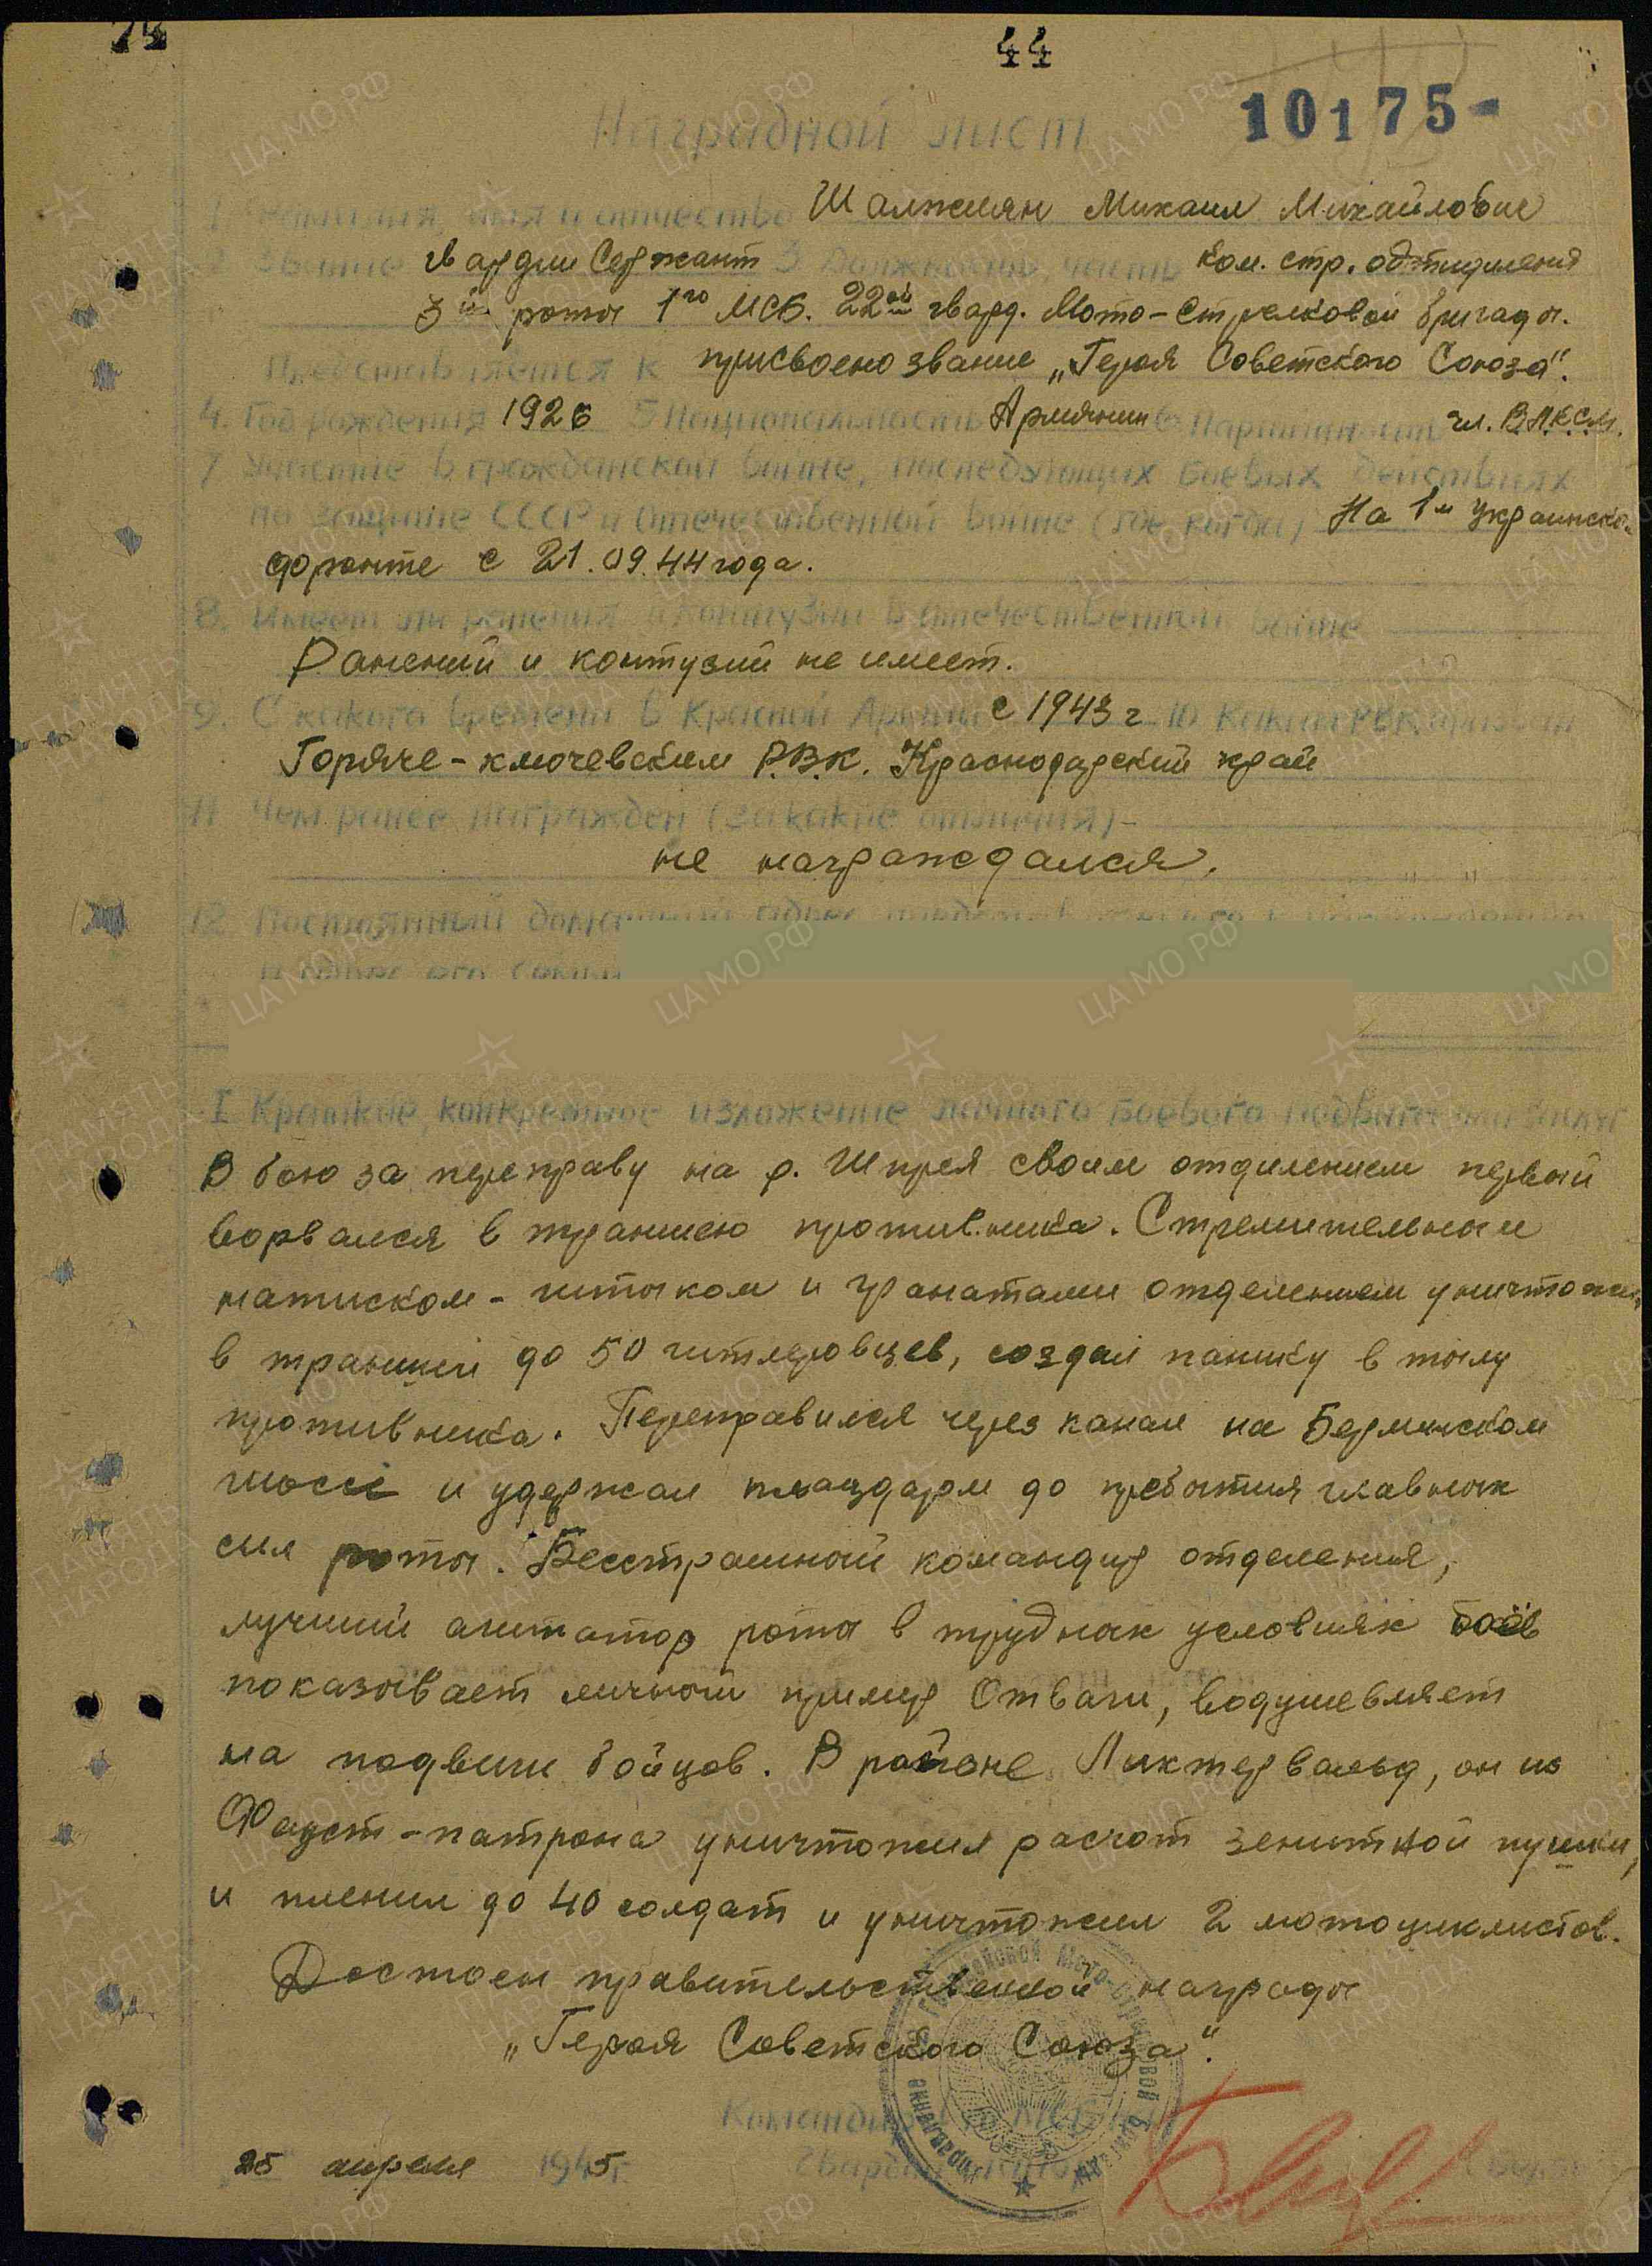 44
10175-
Наградной лист
1 Фамилия, имя и отчество Шалжиян Михаил Михайлович
2 Звание гвардии Сержант 3 Должность, часть ком. стр. отделения
3й роты 1го МСБ. 22ой гвард. Мото-стрелковой бригады.
Представляется к присвоено звание „Героя Советского Союза".
4. Год рождения 1926 5 Национальность Армянин 6 Партийность чл. ВЛКСМ.
7 Участие в гражданской войне, последующих боевых действиях
по защите СССР и отечественной войне (где, когда) На 1м Украинско
фронте с 21.09.44 года.
8. Имеет ли ранения и контузии в отечественной войне
Ранений и контузий не имеет.
9. С какого времени в Красной Армии с 1943 г 10 Каким РВК призван
Горяче-ключевским Р.В.К. Краснодарский край
11 Чем ранее награжден (за какие отличия) -
не награждался.
12 Постоянный домашний адрес
и адрес его семьи
I Краткое, конкретное изложение личного боевого подвига или заслуг
В бою за переправу на р. Шпрея своим отделением первый
ворвался в траншею противника. Стремительным
натиском - штыком и гранатами отделением уничтожил
в траншеи до 50 гитлеровцев, создал панику в тылу
противника. Переправился через канал на Берлинском
шоссе и удержал плацдарм до прибытия главных
сил роты. Бесстрашный командир отделения,
лучший агитатор роты в трудных условиях боёв
показывает личный пример Отваги, водушевляет
на подвиги бойцов. В районе Ликтервальд, он из
Фауст-патрона уничтожил расчот зенитной пушки,
и пленил до 40 солдат и уничтожил 2 мотоциклистов.
Достоен правительственной награды
„Героя Советского Союза".
Командир МСБ
25 апреля 1945г. Гвардии